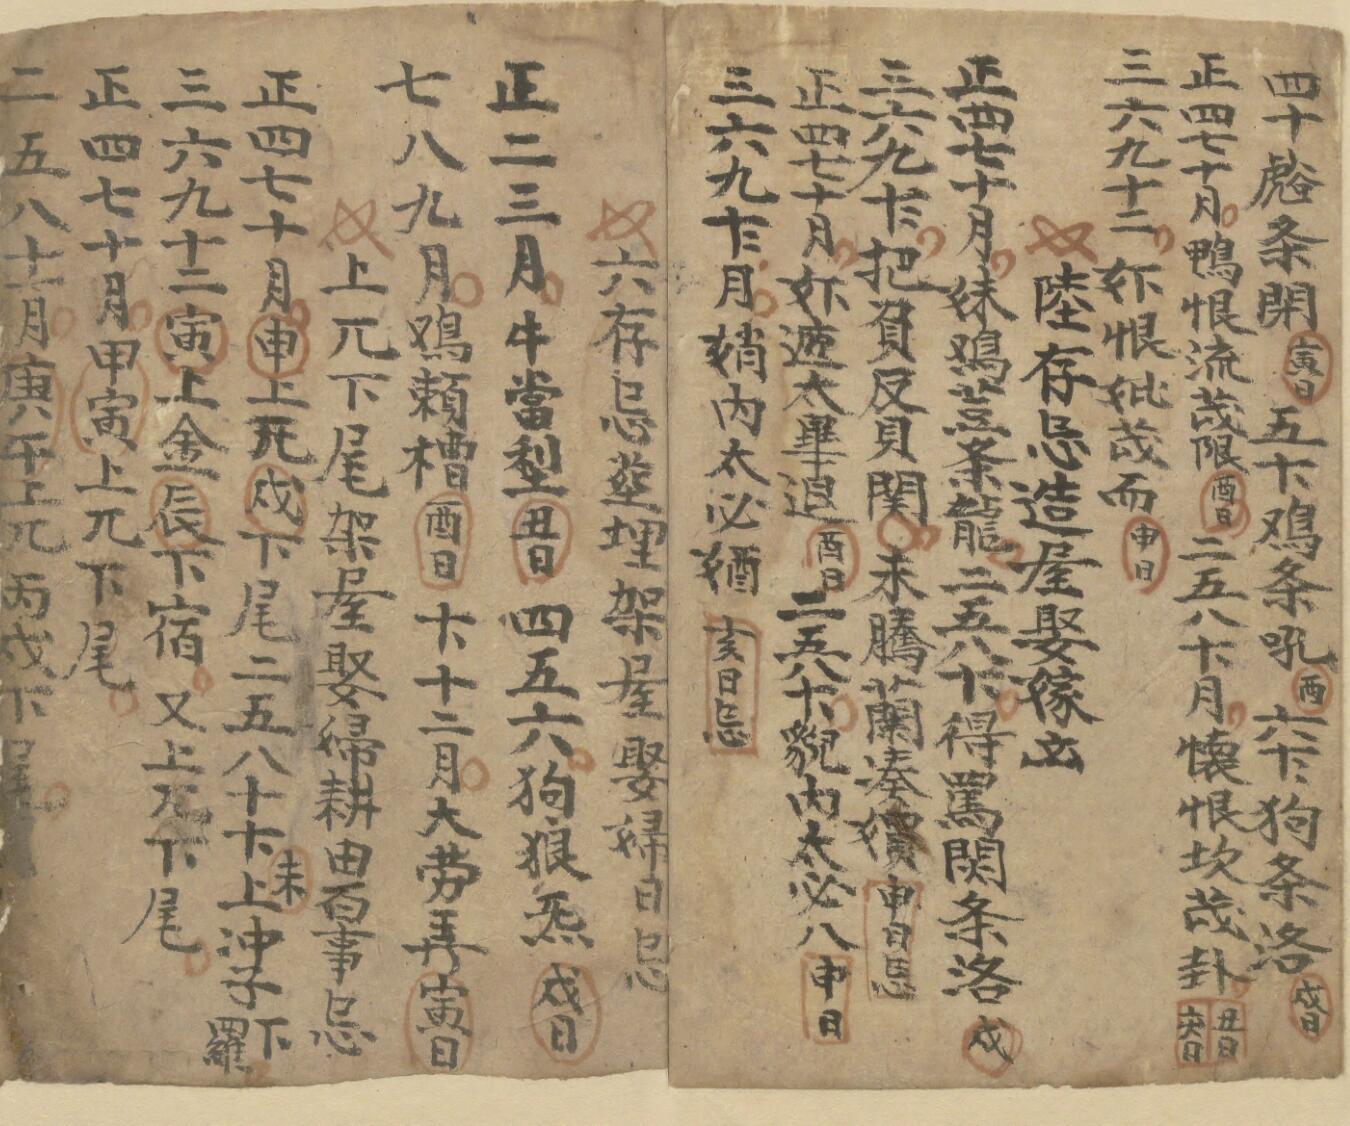 四十彪条閑寅日五卞鸡条吼酉六卞狗条洛戍日
正四七十月鴨恨流茂限酉日二五八卞月懐恨坎茂卦丑日亥日
三六九十二妚恨妣茂而申日
陸存忌造屋娶嫁立
正四七十月妹鸡荳条龍二五八卞得罵関条洛戍
三六九卞把負反貝関未騰蘭奏申日忌
正四七十月妚遮太畢退酉日二五八卞貎内太必八申日
三六九卞月娋内太必猶亥日忌
六存忌塟埋架屋娶婦日忌
正二三月牛當型丑日四五六狗狼炁戍日
七八九月鸡頼槽酉日卞十二月大劳再寅日
上兀下尾架屋娶婦耕田百事忌
正四七十月申上兀戍下尾二五八十卞上未冲子下羅
三六九十二寅上金辰下宿又上兀下尾
正四七十月甲寅上兀下尾
二五八十月庚午上兀丙戍下尾